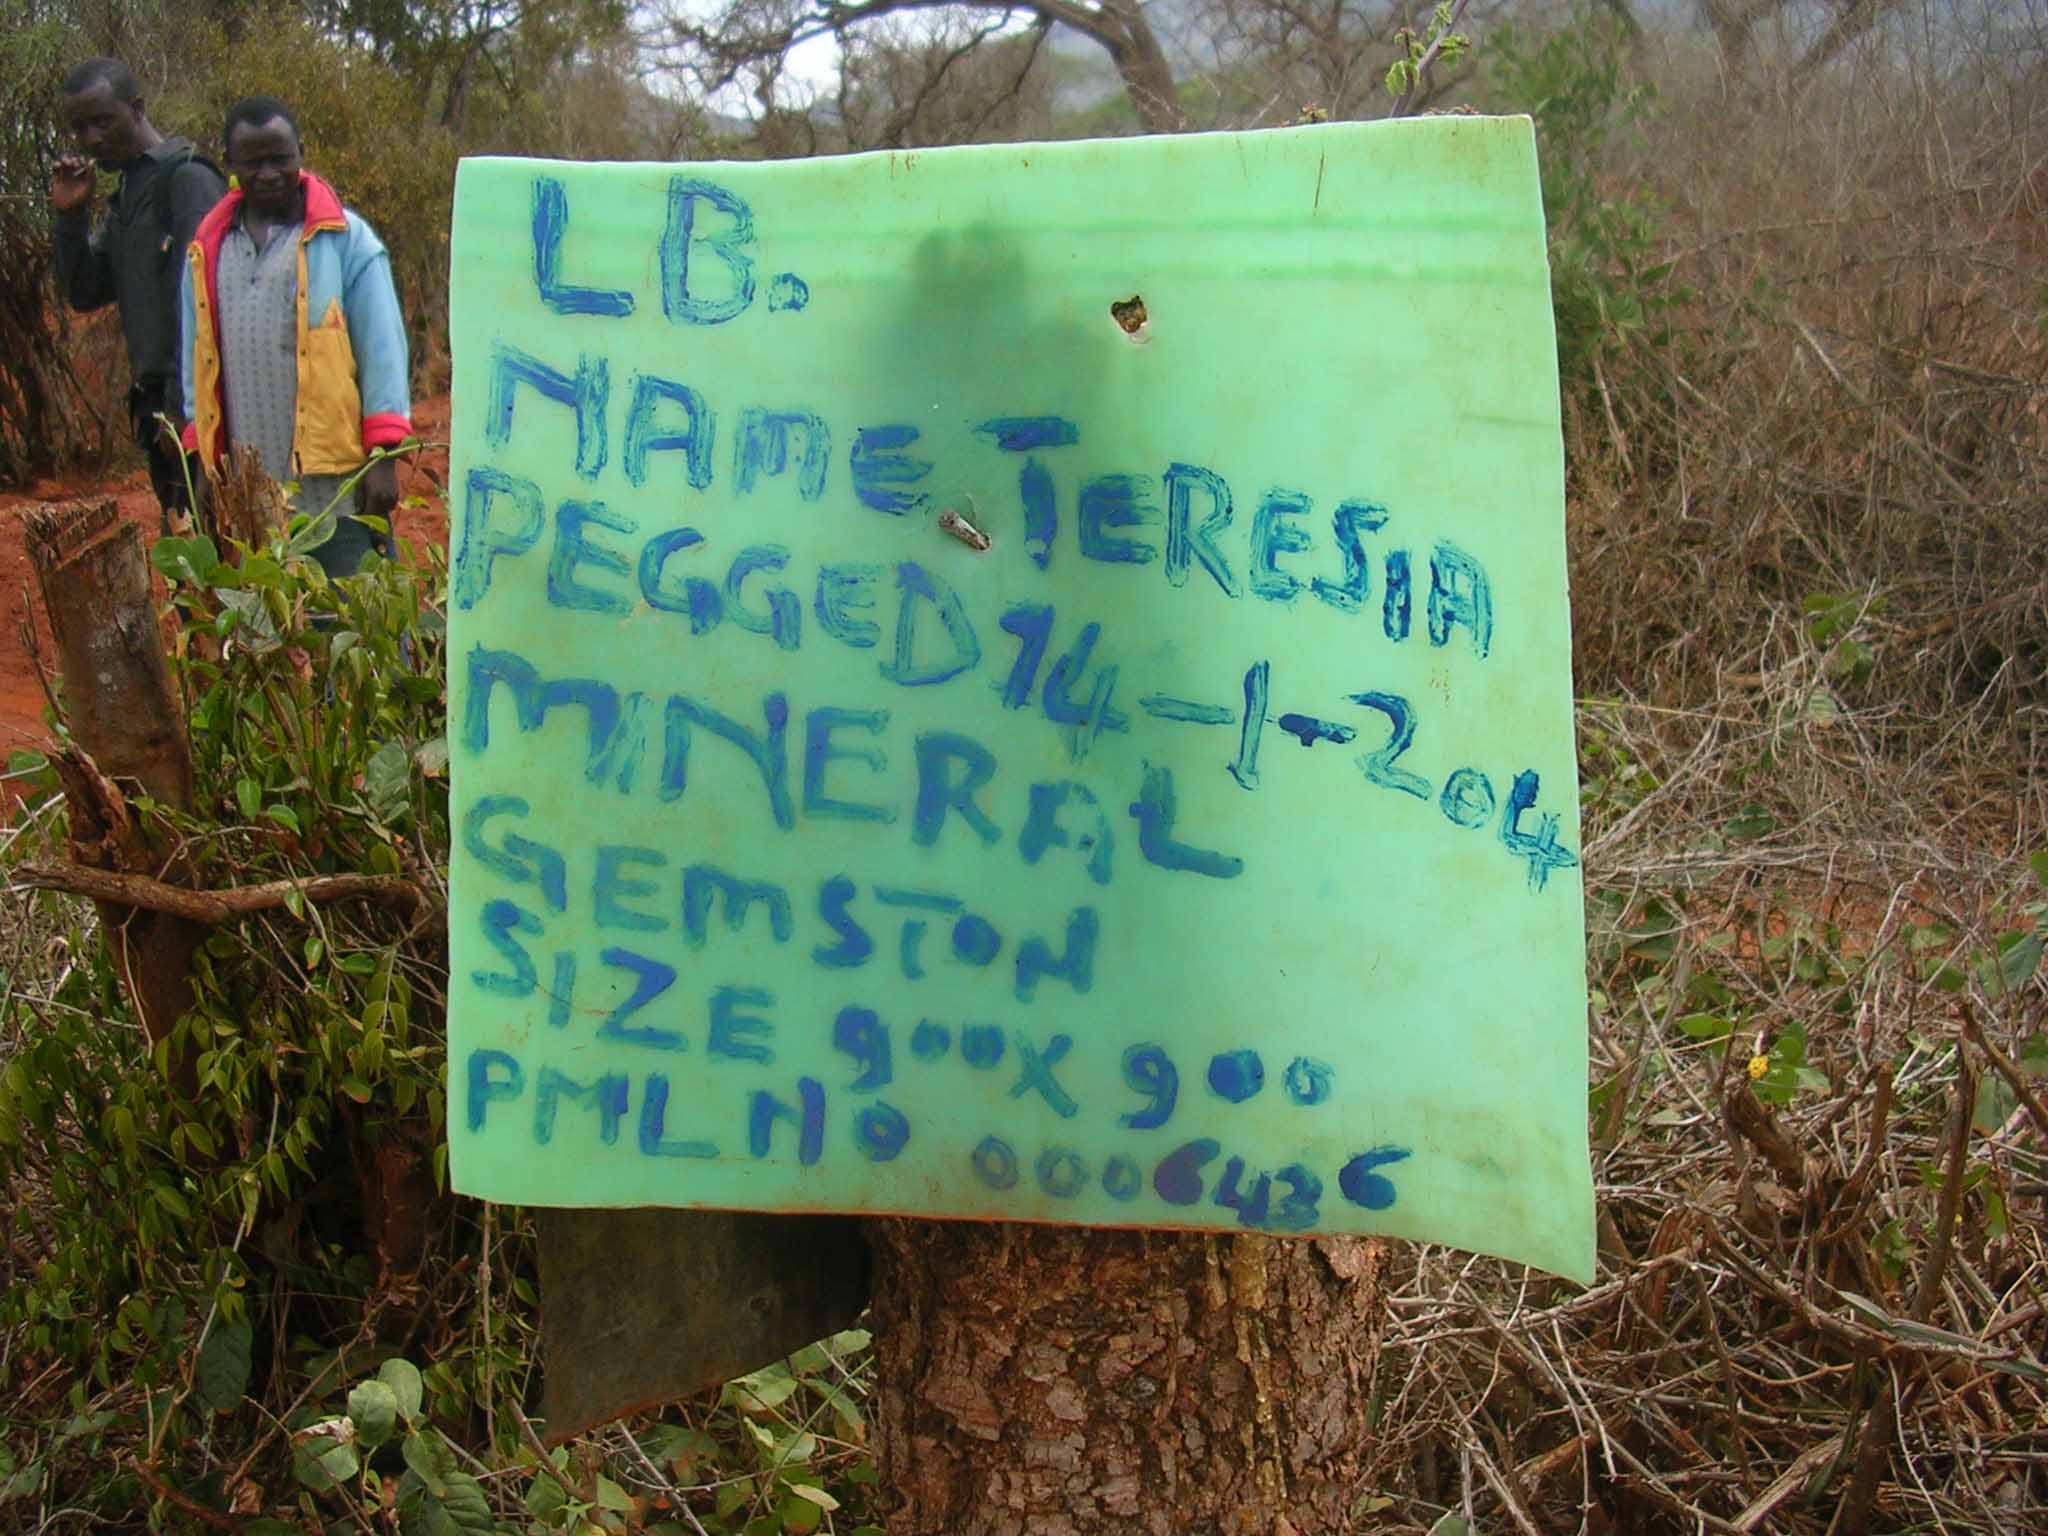 LB.
NAME TERESIA
PEGGED 14-1-204
MINERAL
GEMSTON
SIZE 900X 900
PML NO 0006436